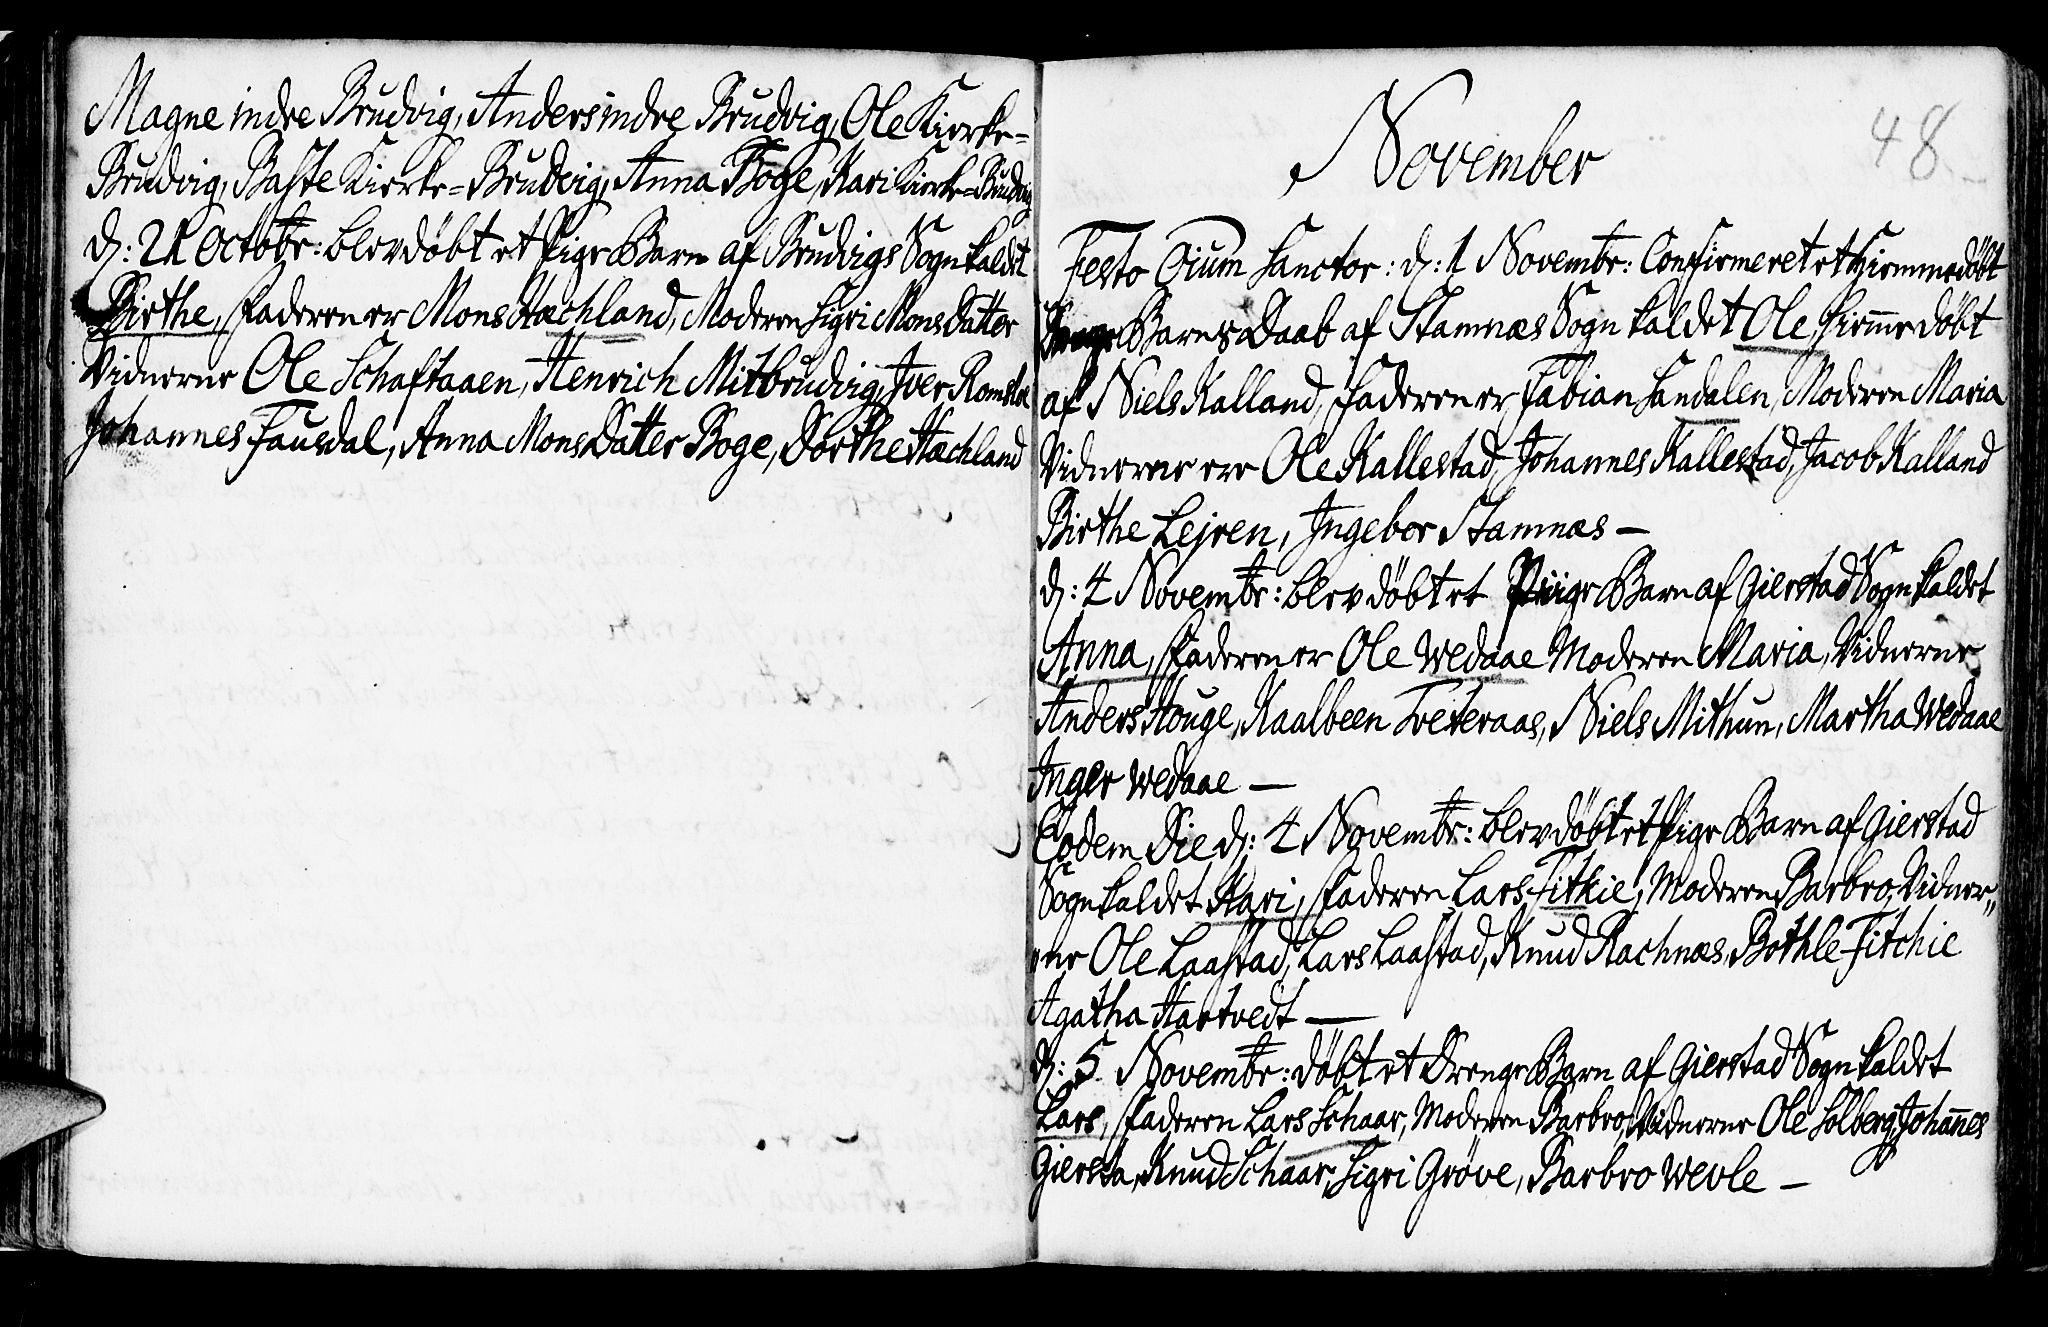 Magne indre Brudvig, Anders indre Brudvig, Ole Kierke=
Brudvig, Baste Kierke=Brudvig, Anna Boge, Kari Kierke=Brudvig
d: 21 Octobr: blev døbt et Pige Barn af Brudvigs Sogn kaldet
Birthe, Faderen er Mons Hæchland, Moderen Sigri Mons Datter
Vidnerne Ole Schaftaaen, Henrich Mitbrudvig, Iver Romslo
Johannes Fausdal, Anna Mons Datter Boge, Dorthe Hæchland
48
November
Festo Oium Sanctor: d: 1 Novembr: Confirmeret et hiemmedøbt
Drenge Barns Daab af Stamnæs Sogn kaldet Ole, hiemedøbt
af Niels Kalland, Faderen er Fabian Sandalen, Moderen Maria
Vidnerne ere Ole Kallestad, Johannes Kallestad, Jacob Kalland
Birthe Lejren, Ingebor Stamnæs —
d: 4 Novembr: blev døbt et Piige Barn af Gierstad Sogn kaldet
Anna, Faderen er Ole Wedaae Moderen Maria, Vidnerne
Anders Houge, Kaalbeen Treteraas, Niels Mithun, Martha Wedaae
Inger Wedaae —
Eodem Die d: 4 Novembr: blev døbt et Pige Barn af Gierstad
Sogn kaldet Kari, Faderen Lars Fithie, Moderen Barbro, Vidner„
„ne Ole Laastad, Lars Laastad, Knud Rachnæs, Bothle Fitchie
Agatha Hartvedt —
d: 5 Novembr: døbt et Drenge Barn af Gierstad Sogn kaldet
Lars, Faderen Lars Schaar, Moderen Barbro, Vidnerne Ole Solberg, Johanes
Giersta, Knud Schaar, Sigri Grøve, Barbro Wevle —